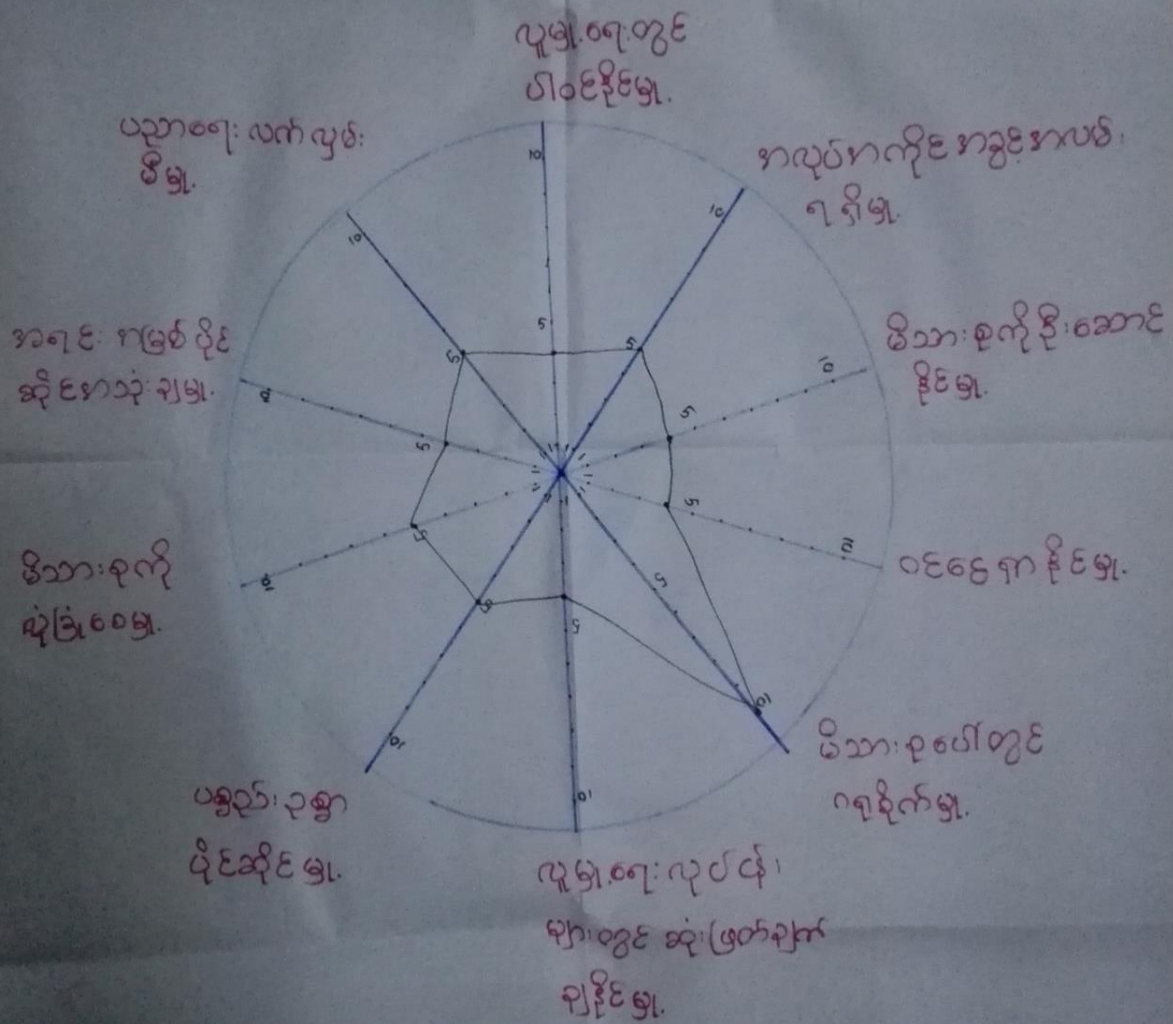 လူမှု့ရေးတွင်
ပါဝင်နိုင်မှု့
အလုပ်အကိုင်အခွင့်အလမ်း
ရရှိမှု့
မိသားစုကိုဦးဆောင်
နိုင်မှု့
ဝင်ငွေရှာနိုင်မှု့
မိသားစုပေါ်တွင်
ဂရုစိုက်မှု့
လူမှု့ရေးလုပ်ငန်း
များတွင် ဆုံးဖြတ်ချက်
ချနိုင်မှု့
ပစ္စည်းဥစ္စာ
ပိုင်ဆိုင်မှု့
မိသားစုကို
လုံခြုံစေမှု့
အရင်းအမြစ်ပိုင်
ဆိုင်အသုံးချမှု့
ပညာရေးလက်လှမ်း
မီမှု့
10
5
10
5
10
5
10
5
10
5
10
5
10
5
10
5
10
5
10
5